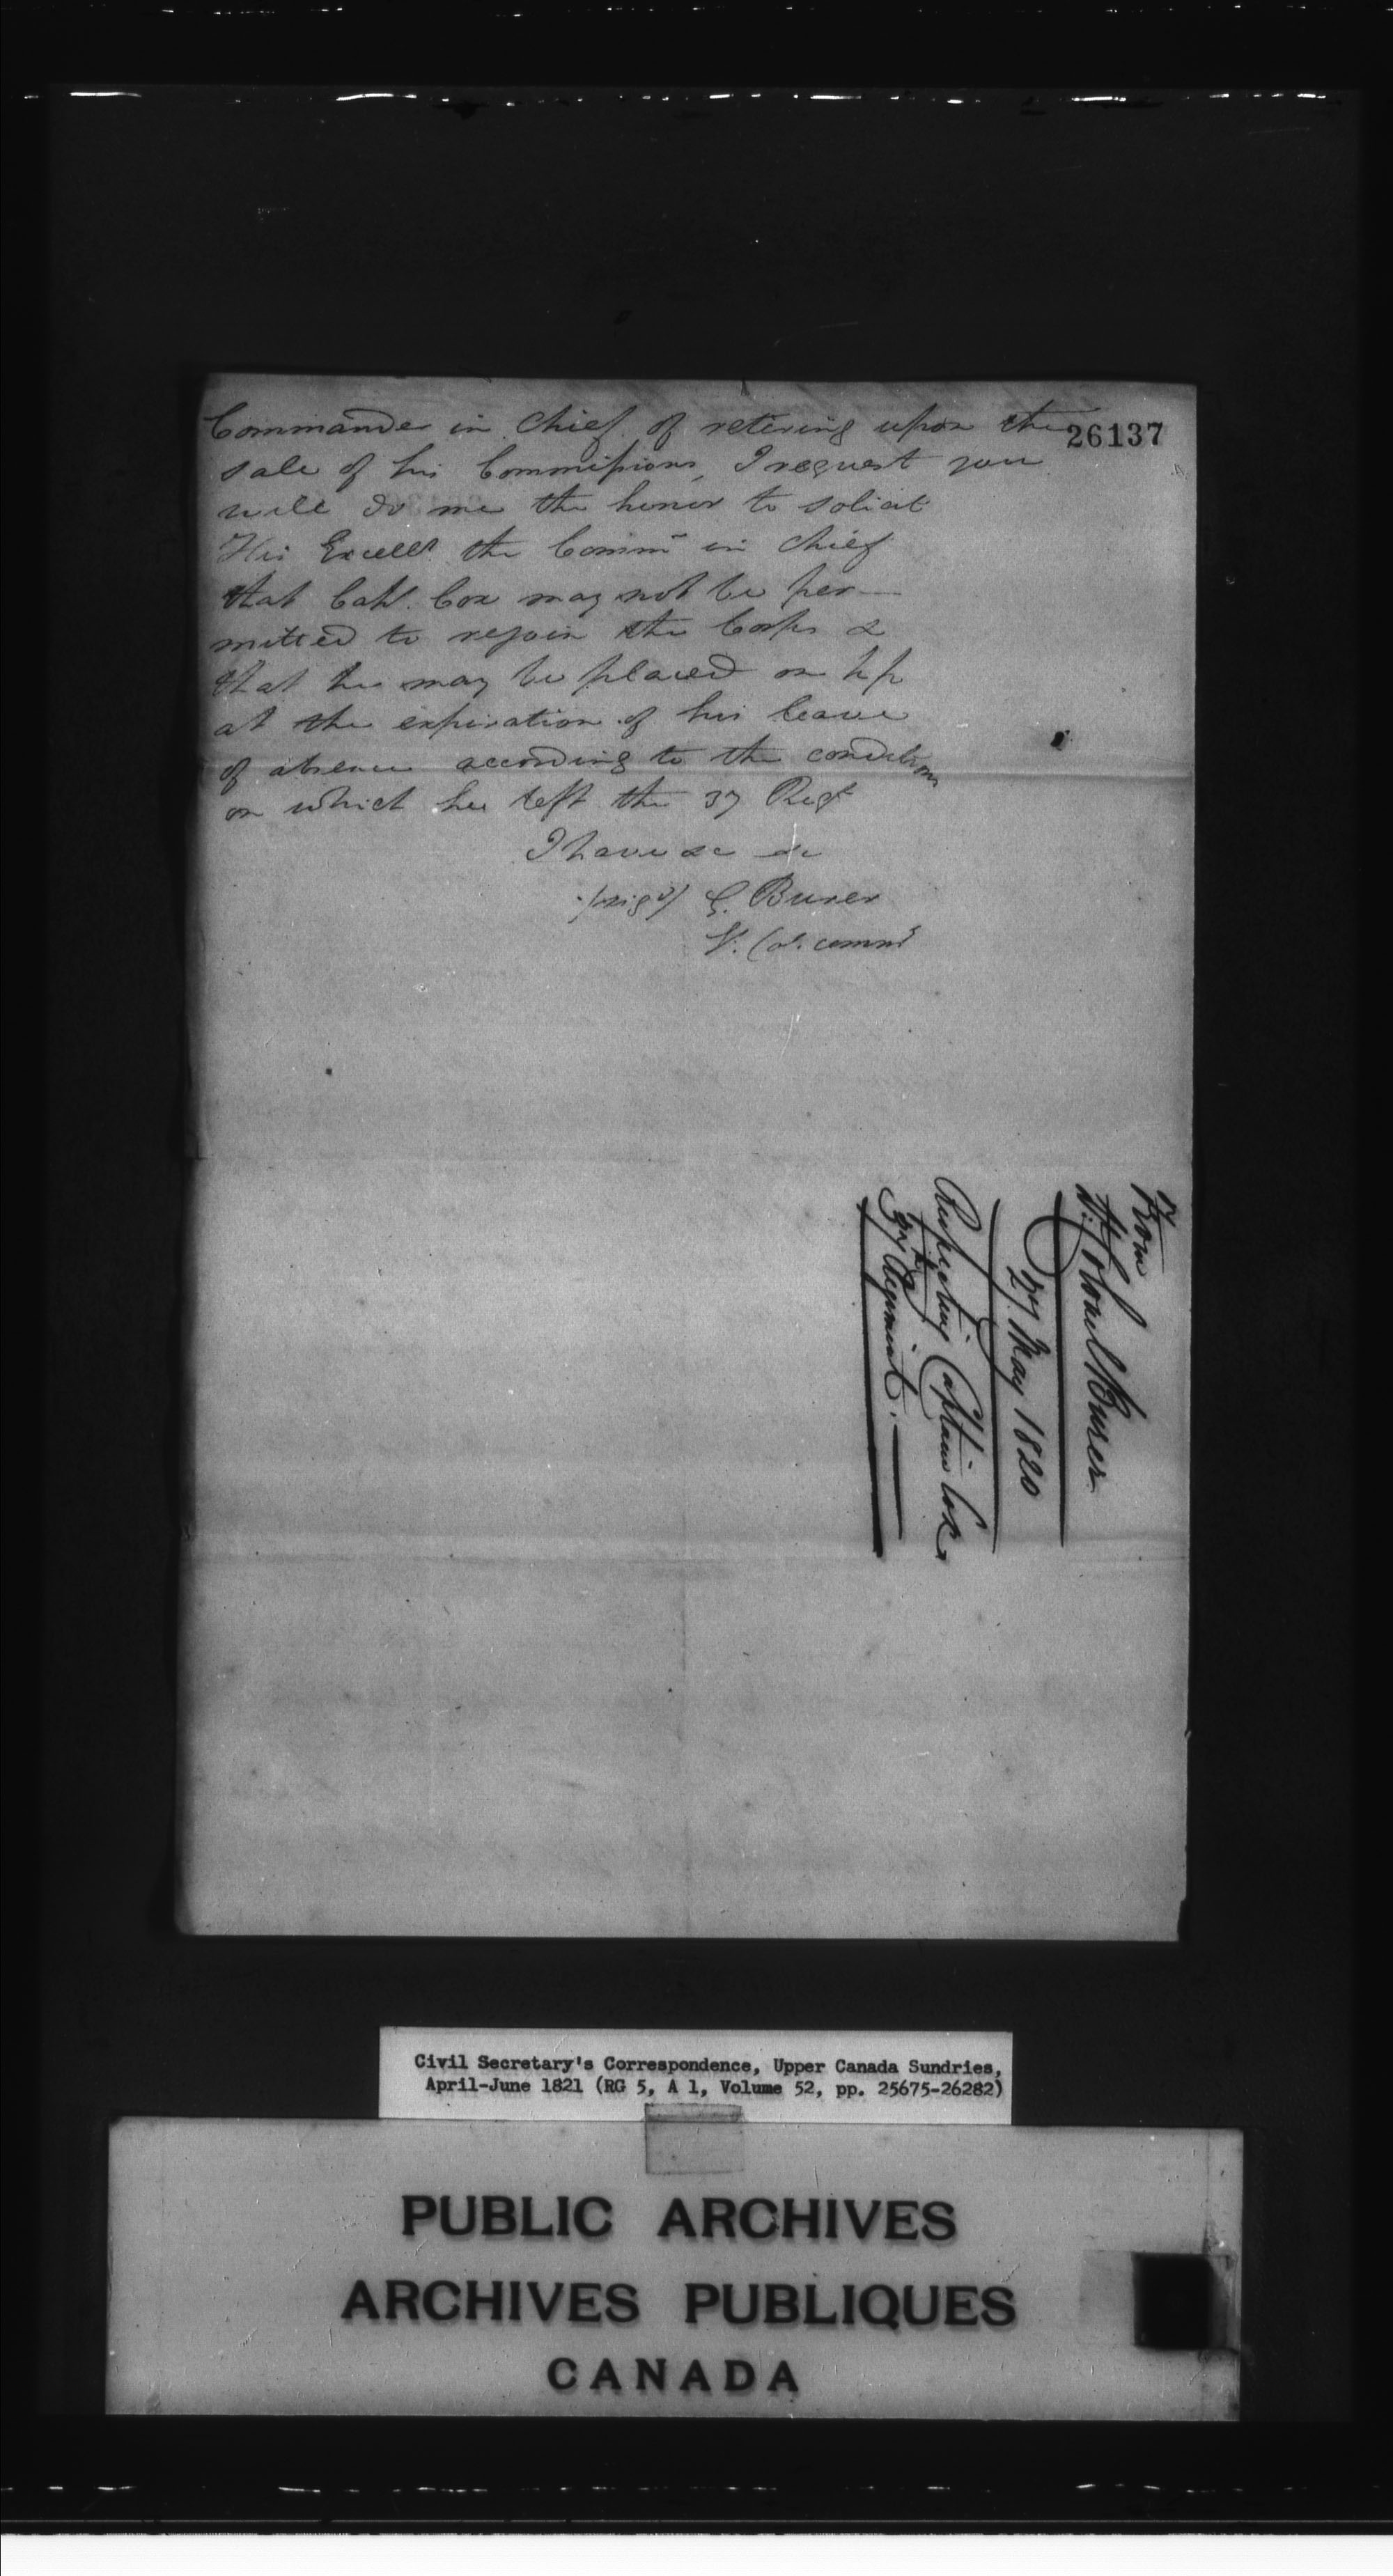 26137
Commander in Chief of retiring upon the
sale of his Commissions, I request you
will do me the honor to solicit
His Excell? the Comm? in Chief
that Capt. Cox may not be per—
mitted to rejoin the Corps &
that he may be placed on h p
at the expiration of his leave
of absence according to the conditions
on which he left the 37 Regt
I have &c &c
(sigd) G. Burer
Lt. Col. commd
From
Lt. Colonel Burer
27 May 1820
Respecting Captain Cox
37th Regiment.
Civil Secretary's Correspondence, Upper Canada Sundries,
April-June 1821 (RG 5, A 1, Volume 52, pp. 25675-26282)
PUBLIC ARCHIVES
ARCHIVES PUBLIQUES
CANADA